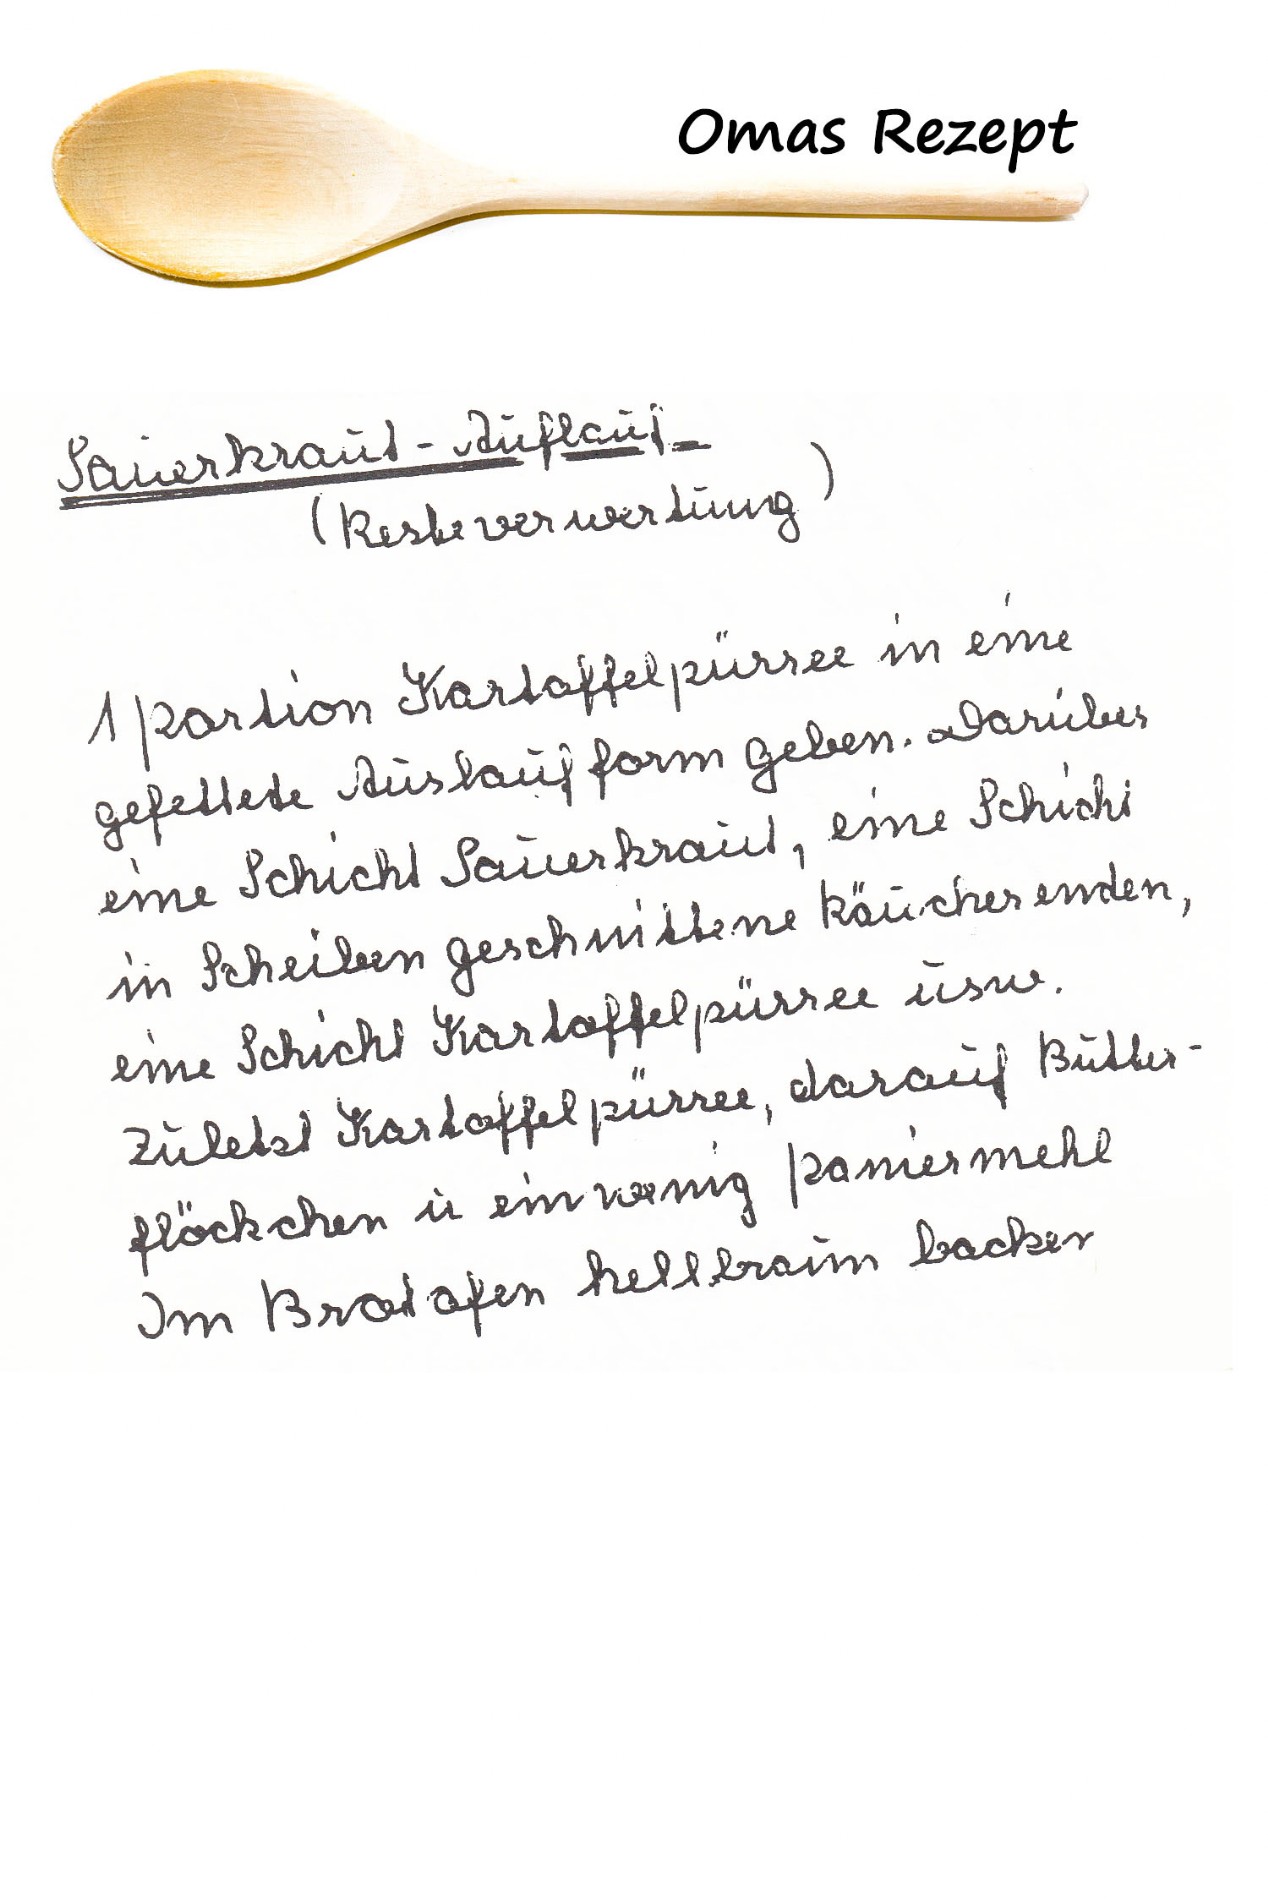 Omas Rezept
Sauerkraut-Auflauf
(Resteverwertung)
1 Portion Kartoffelpürree in eine
gefettete Auslaufform geben. Darüber
eine Schicht Sauerkraut, eine Schicht
in Scheiben geschnittene Räucherenden,
eine Schicht Kartoffelpürree usw.
Zuletzt Kartoffelpürree, darauf Butter-
flöckchen u ein wenig Paniermehl
Im Bratofen hellbraun backen